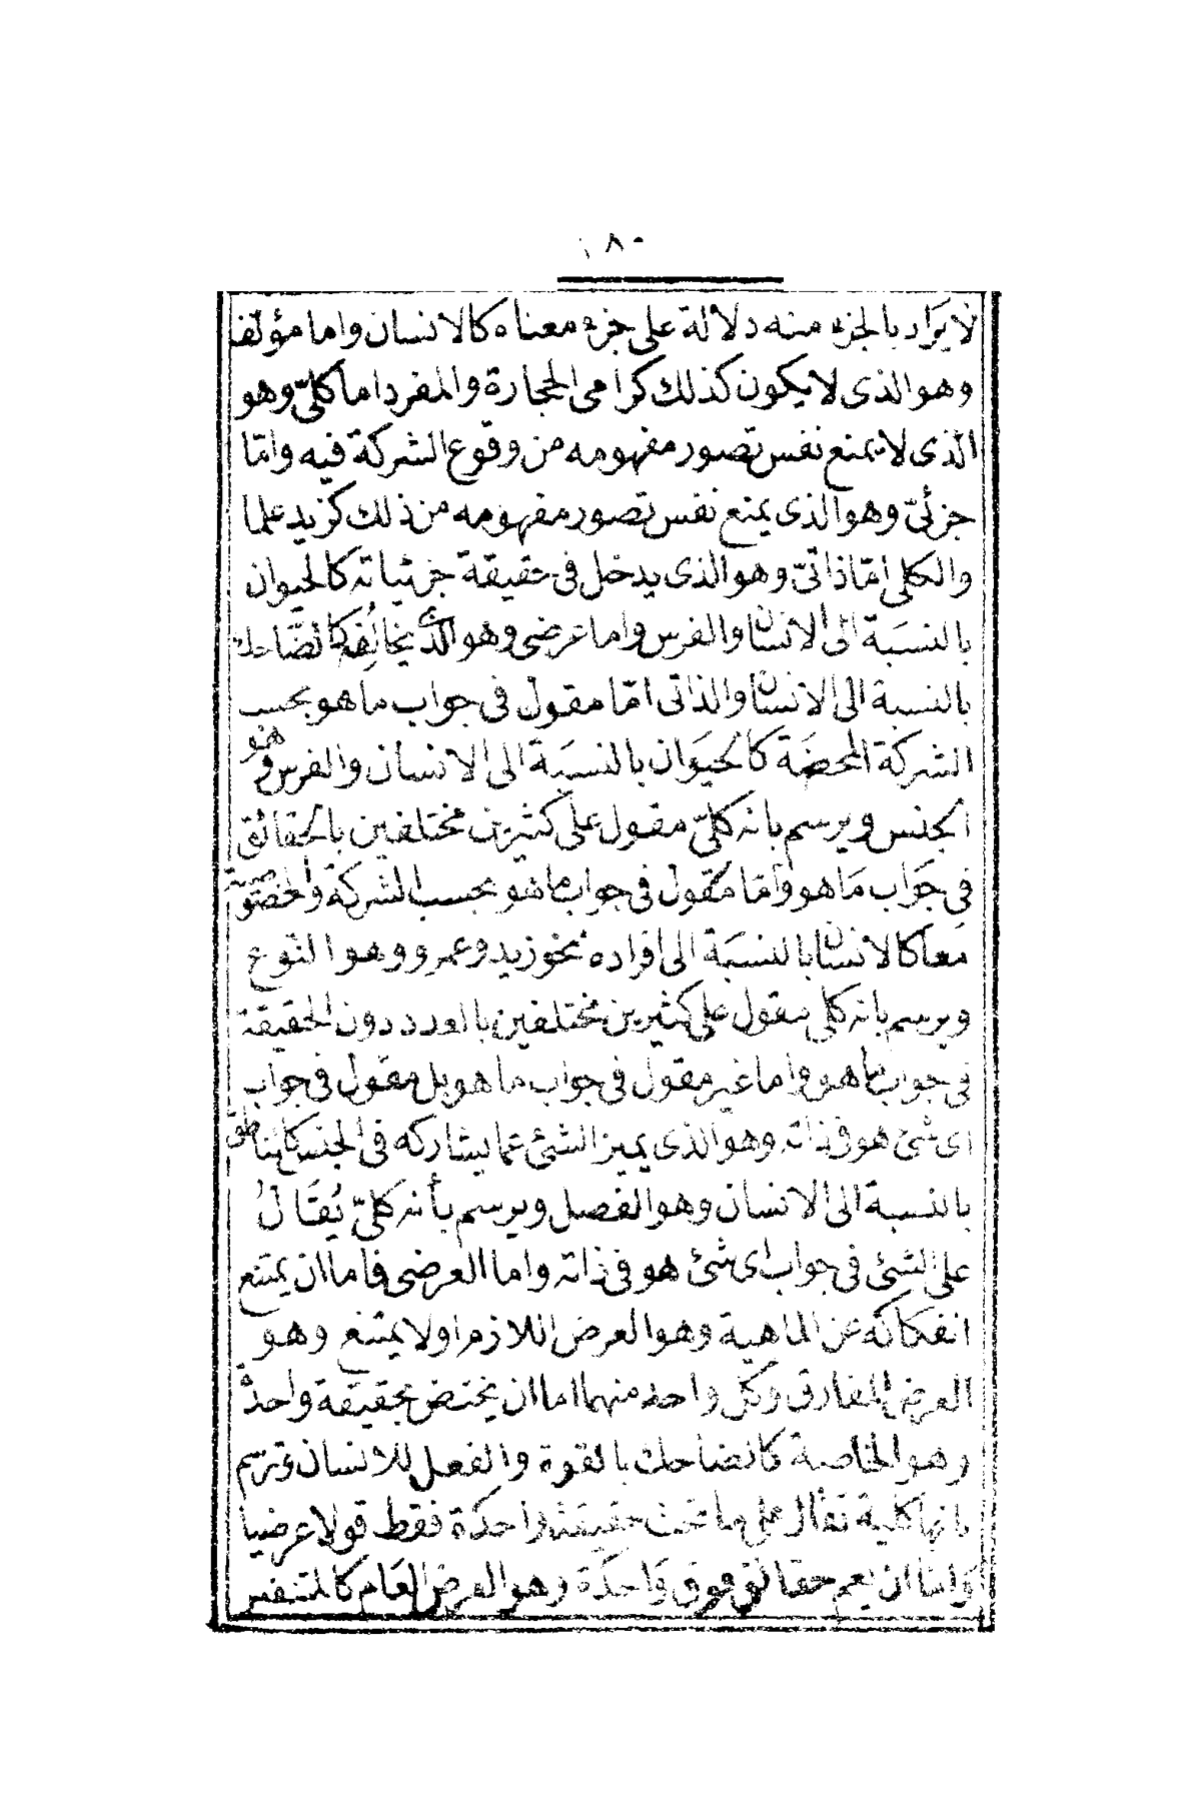 ١٨٠
لا يراد بالجزء منه دلالة على جزء معناه كالانسان واما مؤلف
وهو الذى لا يكون كذلك كرامى الحجارة والمفرد اما كلىّ وهو
الّذى لا يمنع نفس تصور مفهومه من وقوع الشركة فيه وامّا
جزئىّ وهو الذى يمنع نفس تصور مفهومه من ذلك كزيد علما
والكلى امّا ذاتىّ وهو الذى يدخل فى حقيقة جزئياته كالحيوان
بالنسبة الى الانسان والفرس واما عرضى وهو الذى يخالفه كالضّاحك
بالنسبة الى الانسان والذاتى امّا مقول فى جواب ما هو بحسب
الشركة المحضة كالحيوان بالنسبة الى الانسان والفرس وهو
الجنس ويرسم بانه كلىّ مقول على كثيرين مختلفين بالحقائق
فى جواب ما هو وامّا مقول فى جواب ما هو بحسب الشركة والخصوصية
معا كالانسان بالنسبة الى افراده نحو زيد وعمرو وهو النوع
ويرسم بانه كلى مقول على كثيرين مختلفين بالعدد دون الحقيقة
فى جواب ما هو واما غير مقول فى جواب ما هو بل مقول فى جواب
اى شئ هو فى ذاته وهو الذى يميز الشئ عما يشاركه فى الجنس كالناطق
بالنسبة الى الانسان وهو الفصل ويرسم بأنه كلىّ يُقَالُ
على الشئ فى جواب اى شئ هو فى ذاته واما العرضى فاما ان يمتنع
انفكاكه عن الماهية وهو العرض اللازم او لا يمتنع وهو
العرض المفارق وكل واحد منهما اما ان يختص بحقيقة واحدة
وهو الخاصة كالضاحك بالقوة والفعل للانسان وترسم
بانها كلية تقال على ما تحت حقيقة واحدة فقط قولا عرضيا
واما ان يعم حقائق فوق واحدة وهو العرض العام كالمتنفس